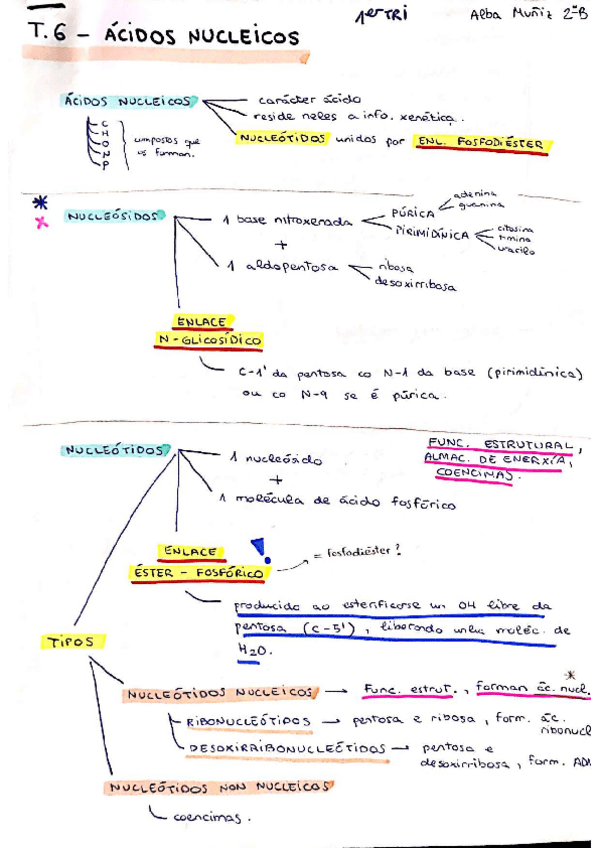 1er TRI
Alba Muñiz 2ºB
T.6 - ÁCIDOS NUCLEICOS
ÁCIDOS NUCLEICOS
carácter ácido
reside neles a info. xenética.
NUCLEÓTIDOS unidos por ENL. FOSFODIÉSTER
C
H
O
N
P
compostos que
os forman.
NUCLEÓSIDOS
1 base nitroxenada
PÚRICA
adenina
guanina
PIRIMIDÍNICA
citosina
timina
uracilo
+
1 aldopentosa
ribosa
desoxirribosa
ENLACE
N-GLICOSÍDICO
C-1' da pentosa co N-1 da base (pirimidínica)
ou co N-9 se é púrica.
NUCLEÓTIDOS
1 nucleósido
+
1 molécula de ácido fosfórico
FUNC. ESTRUTURAL,
ALMAC. DE ENERXÍA,
COENCIMAS.
ENLACE
ÉSTER - FOSFÓRICO
= fosfodiéster?
producido ao esterificarse un OH libre da
pentosa (C-5'), liberando unha moléc. de
H2O.
TIPOS
NUCLEÓTIDOS NUCLEICOS → Func. estrut., forman ác. nucl.
RIBONUCLEÓTIDOS → pentosa e ribosa, form. ác.
ribonucl
DESOXIRRIBONUCLEÓTIDOS → pentosa e
desoxirribosa, form. ADN
NUCLEÓTIDOS NON NUCLEICOS
coencimas.